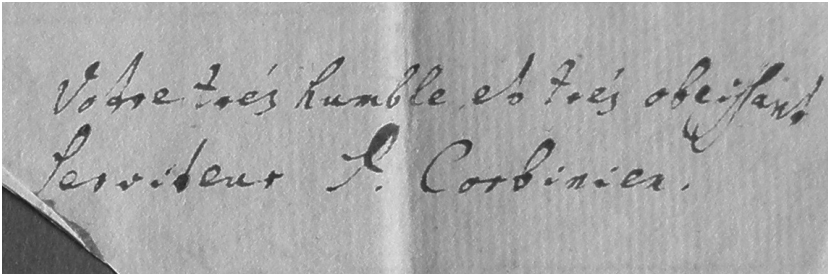 Votre trés humble et trés obeissant
serviteur P. Corbinien.